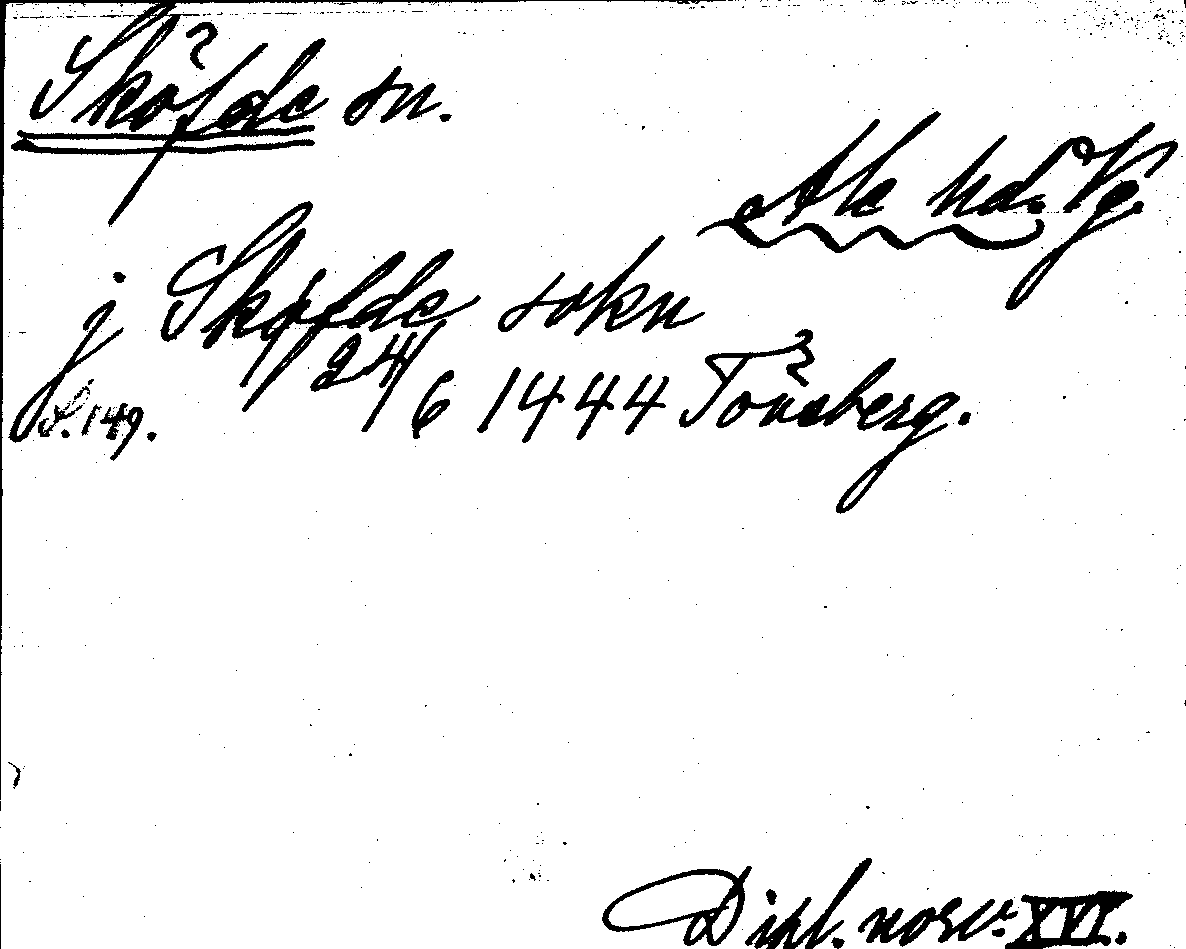 Sköfde sn.
Ale hd. Vg.
j Skøfde sokn
S. 149. 24/6 1444 Tönsberg.
Dipl. norv. XVI.